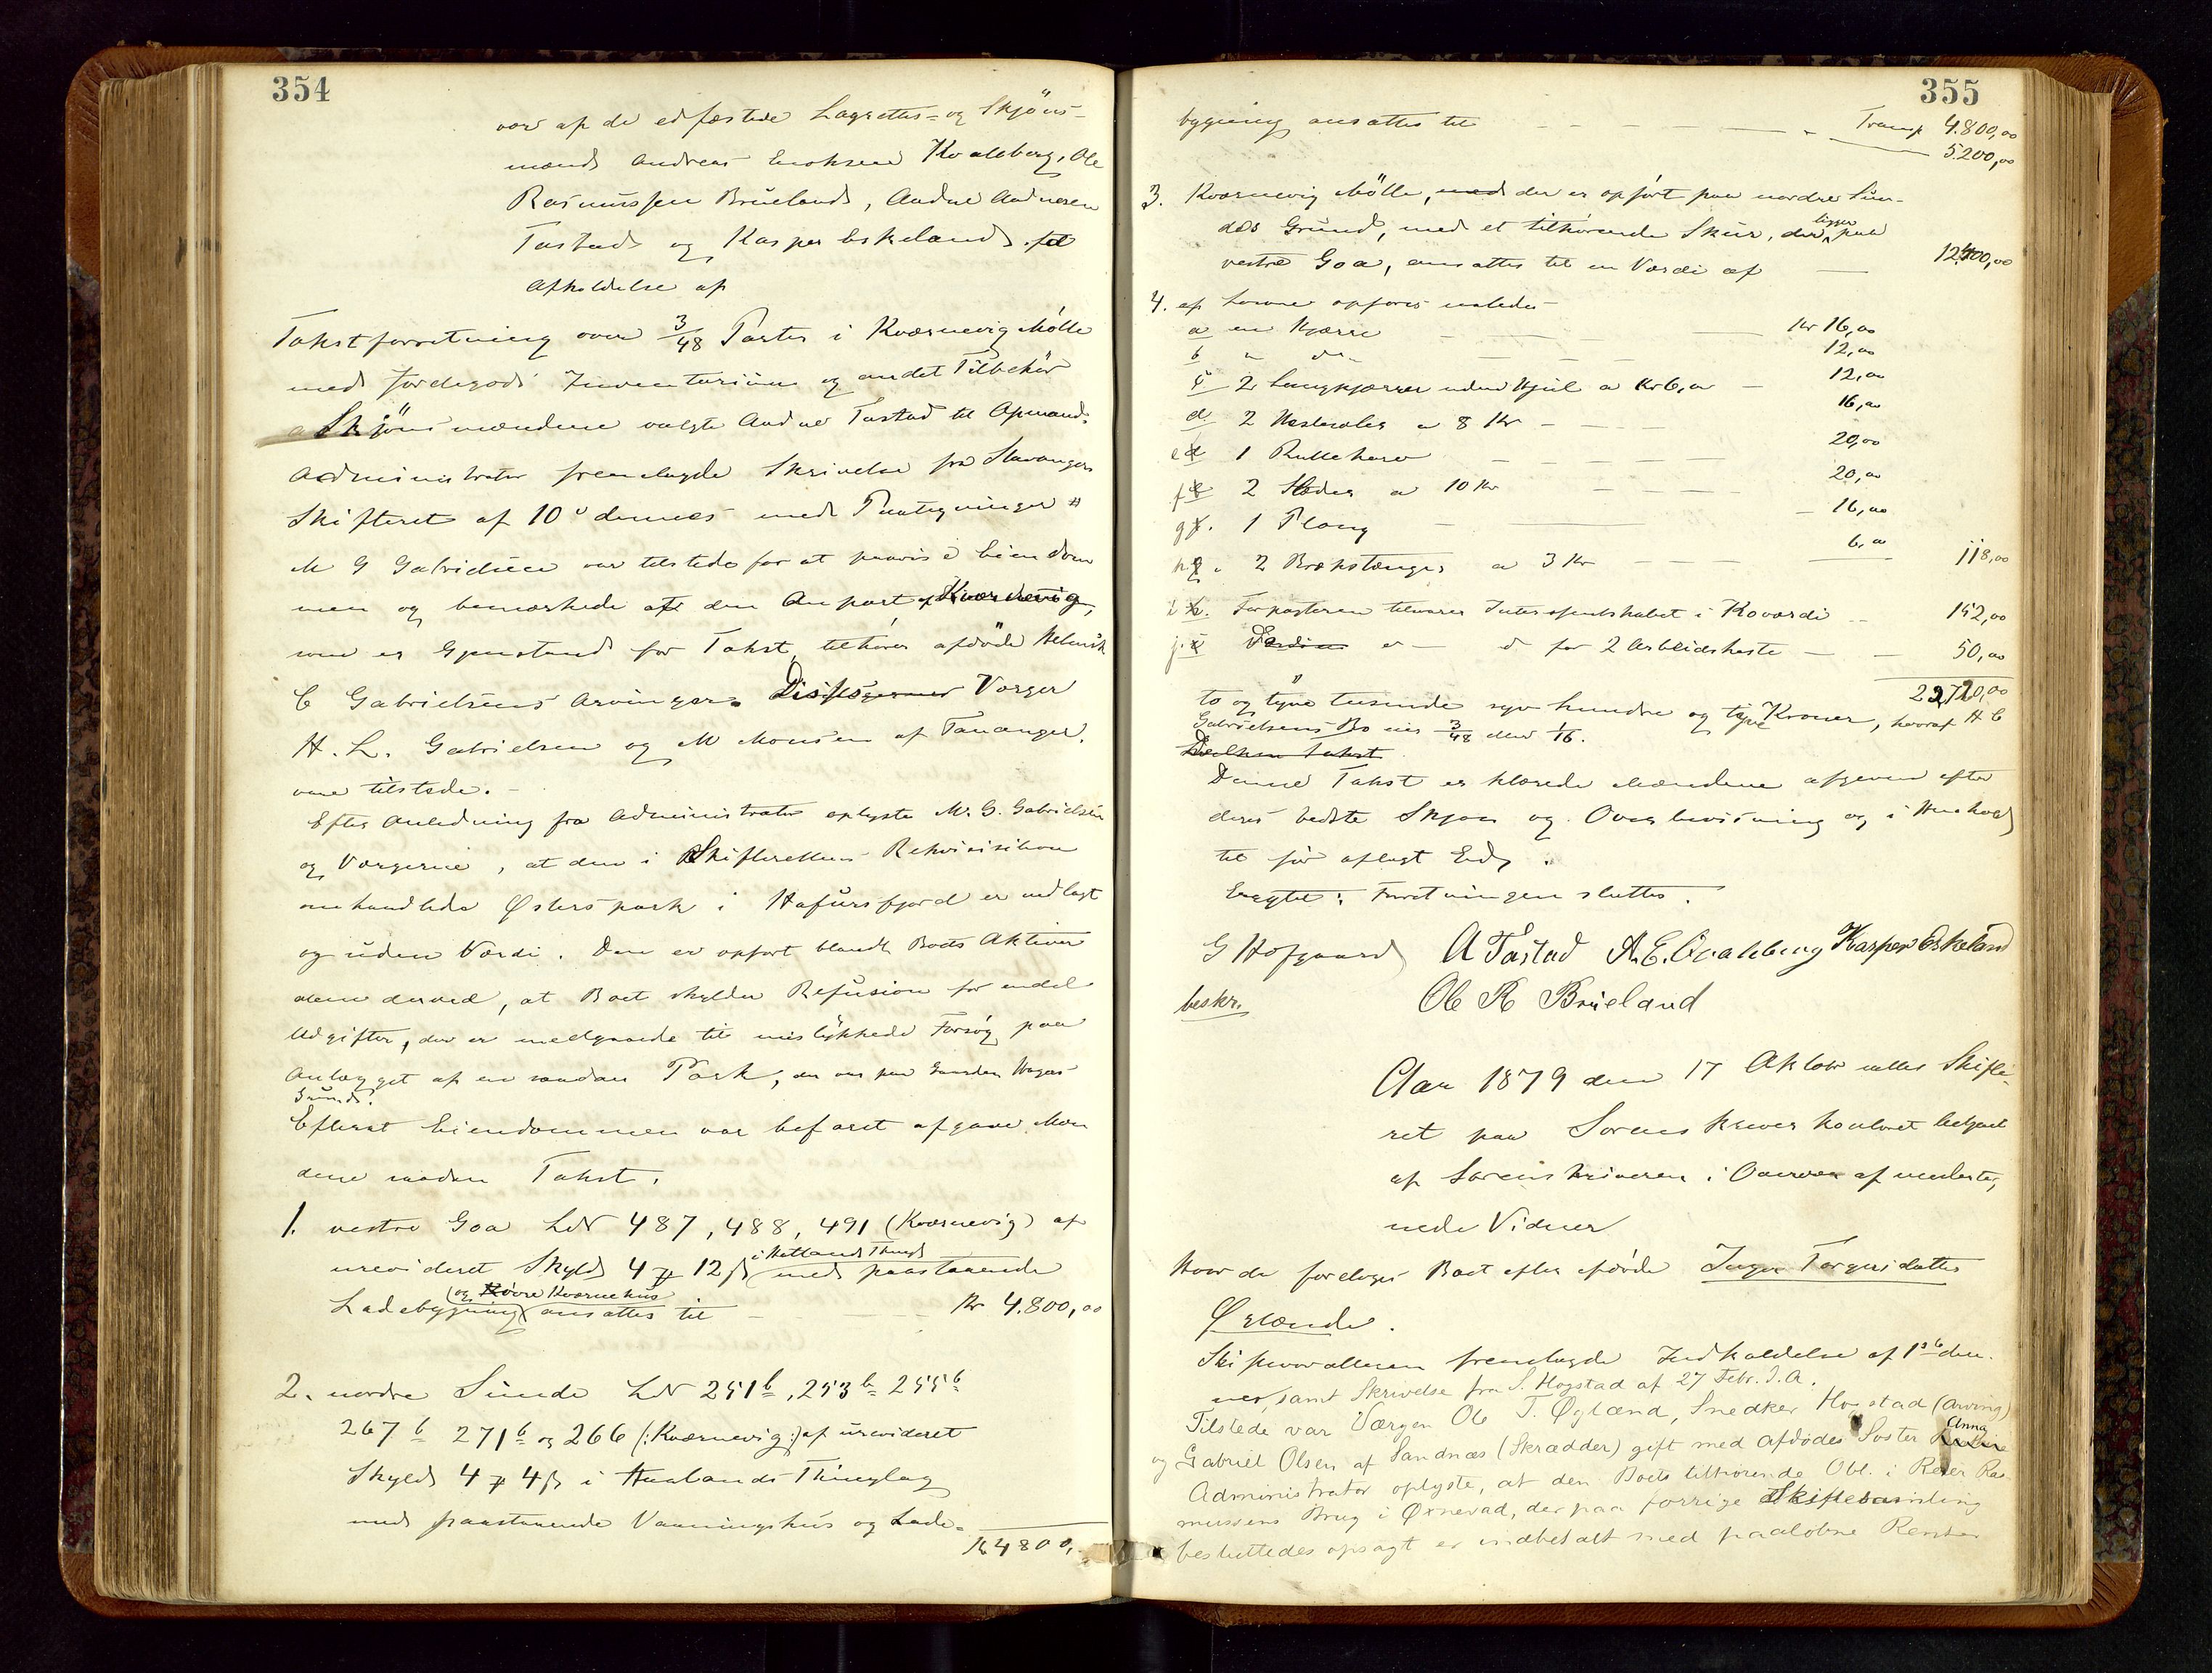 354
var af de edfæstede Lagrettes- og Skjöns-
mænd Andreas Enoksen Kvaleberg, Ole
Rasmussen Brueland, Audne Audnesen
Tastad og Kasper Eskeland til
Afholdelse af
Takstforretning over 3/48 Parter i Kværnevig Mölle
med Jordegods Inventarium og andet Tilbehör
Skjönsmændene valgte Audne Tastad til Opmand.
Administrator fremlagde Skrivelse fra Stavanger
Skifteret af 10de dennes med Paategninger
M G Gabrielsen var tilstede for at paavise Eiendom
men og bemærkede at den Anpart af Kværnevig,
som er Gjenstand for Takst, tilhörer afdöde Helmik
C Gabrielsens Arvinger. Disses Værger
H. L. Gabrielsen og M Monsen af Tananger.
vare tilstede. -
Efter Anledning fra Administrator oplyste M. G. Gabrielsen
og Værgerne, at den i Skifterettens Rekvisision
omhandlede Østerspark i Hafursfjord er nedlagt
og uden Værdi. Den er opfört blandt Boets Aktiver
alene derved, at Boet skylder Refusion for endel
Udgifter, der er medgaaede til mislykkede Forsög paa
Anlægget af en saadan Park, der var paa Gaarden Hagas
Grund.
Efterat Eiendommen var befaret afgave Mæn
dene saadan Takst.
1. vestre Goa LN 487, 488, 491 (Kværnevig) af
i Hetlands Thingl
urevideret Skyld 4 ₰ 12 ß med paastaaende
(og Kværnehus
Ladebygning ansattes til Kr 4.800,00
2. nordre Sunde LN 251b, 253b 255b
267b 271b og 266 (:Kværnevig:) af urevideret
Skyld 4 ₰ 4 ß i Haalands Thinglag
med paastaaende Vaaningshus og Lade-
Kr 4800,
355
bygning ansattes til Transp 4.800,00
5.200,00
3. Kværnevig Mölle, med der er opfört paa nordre Sun-
ligger
des Grund, med et tilhörende Skur, der paa
vestre Goa, ansattes til en Værdi af 12400,00
4. af Lösöre opföres
a en Kjærre Kr 16,00
b " do 12,00
c 2 Langkjærrer uden Hjul a Kr 6,00 12,00
d 2 a 8 Kr 16,00
e 1 Rulleharv 20,00
f 2 Slæder a 10 Kr 20,00
g. 1 Ploug 16,00
h. 2 Brækstænger a 3 Kr 6,00 118,00
i. Forpagteren tilsvarer Interessentskabet i Koværdi 152,00
j. er d for 2 Arbeidsheste 50,00
22,720,00
to og tyve tusinde syv hundre og tyve Kroner, hvoraf H C
Gabrielsens Bo eier 3/48 eller 1/16.
Takst
Denne Takst er klærede Mændene afgiven efter
deres bedste Skjön og Overbevisning og i Henhold
til för aflagt Ed.
Forretningen sluttes.
G Hofgaard A Tastad A. E. Qvaleberg Kasper Eskeland
beskr. Ole R Brueland
Aar 1879 den 17 Oktobr sattes Skifte-
ret paa Sorenskriverkontoret betjent
af Sorenskriveren i Overvær af medunderteg
nede Vidner
Hvor da foretoges Boet efter afdöde Inger Torgersdatter
Øglænde.
Skifteforvalteren fremlagde Indkaldelse af 1ste den-
nes, samt Skrivelse fra S. Hogstad af 27 Febr. I. A.
Tilstede var Værgen Ole T. Øglænd, Snedker Hogstad (Arving)
Anna
og Gabriel Olsen af Sandnæs (Skrædder) gift med afdödes Söster
Administrator oplyste, at den Boets tilhörende Obl. i Reier Ras
mussens Brug i Øxnevad, der paa forrige Skiftesamling
besluttedes opsagt er indbetalt med paalöbne Renter